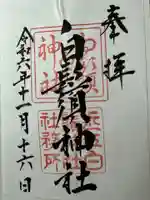 奉拝
白鬚神社
令和六年十一月十六日